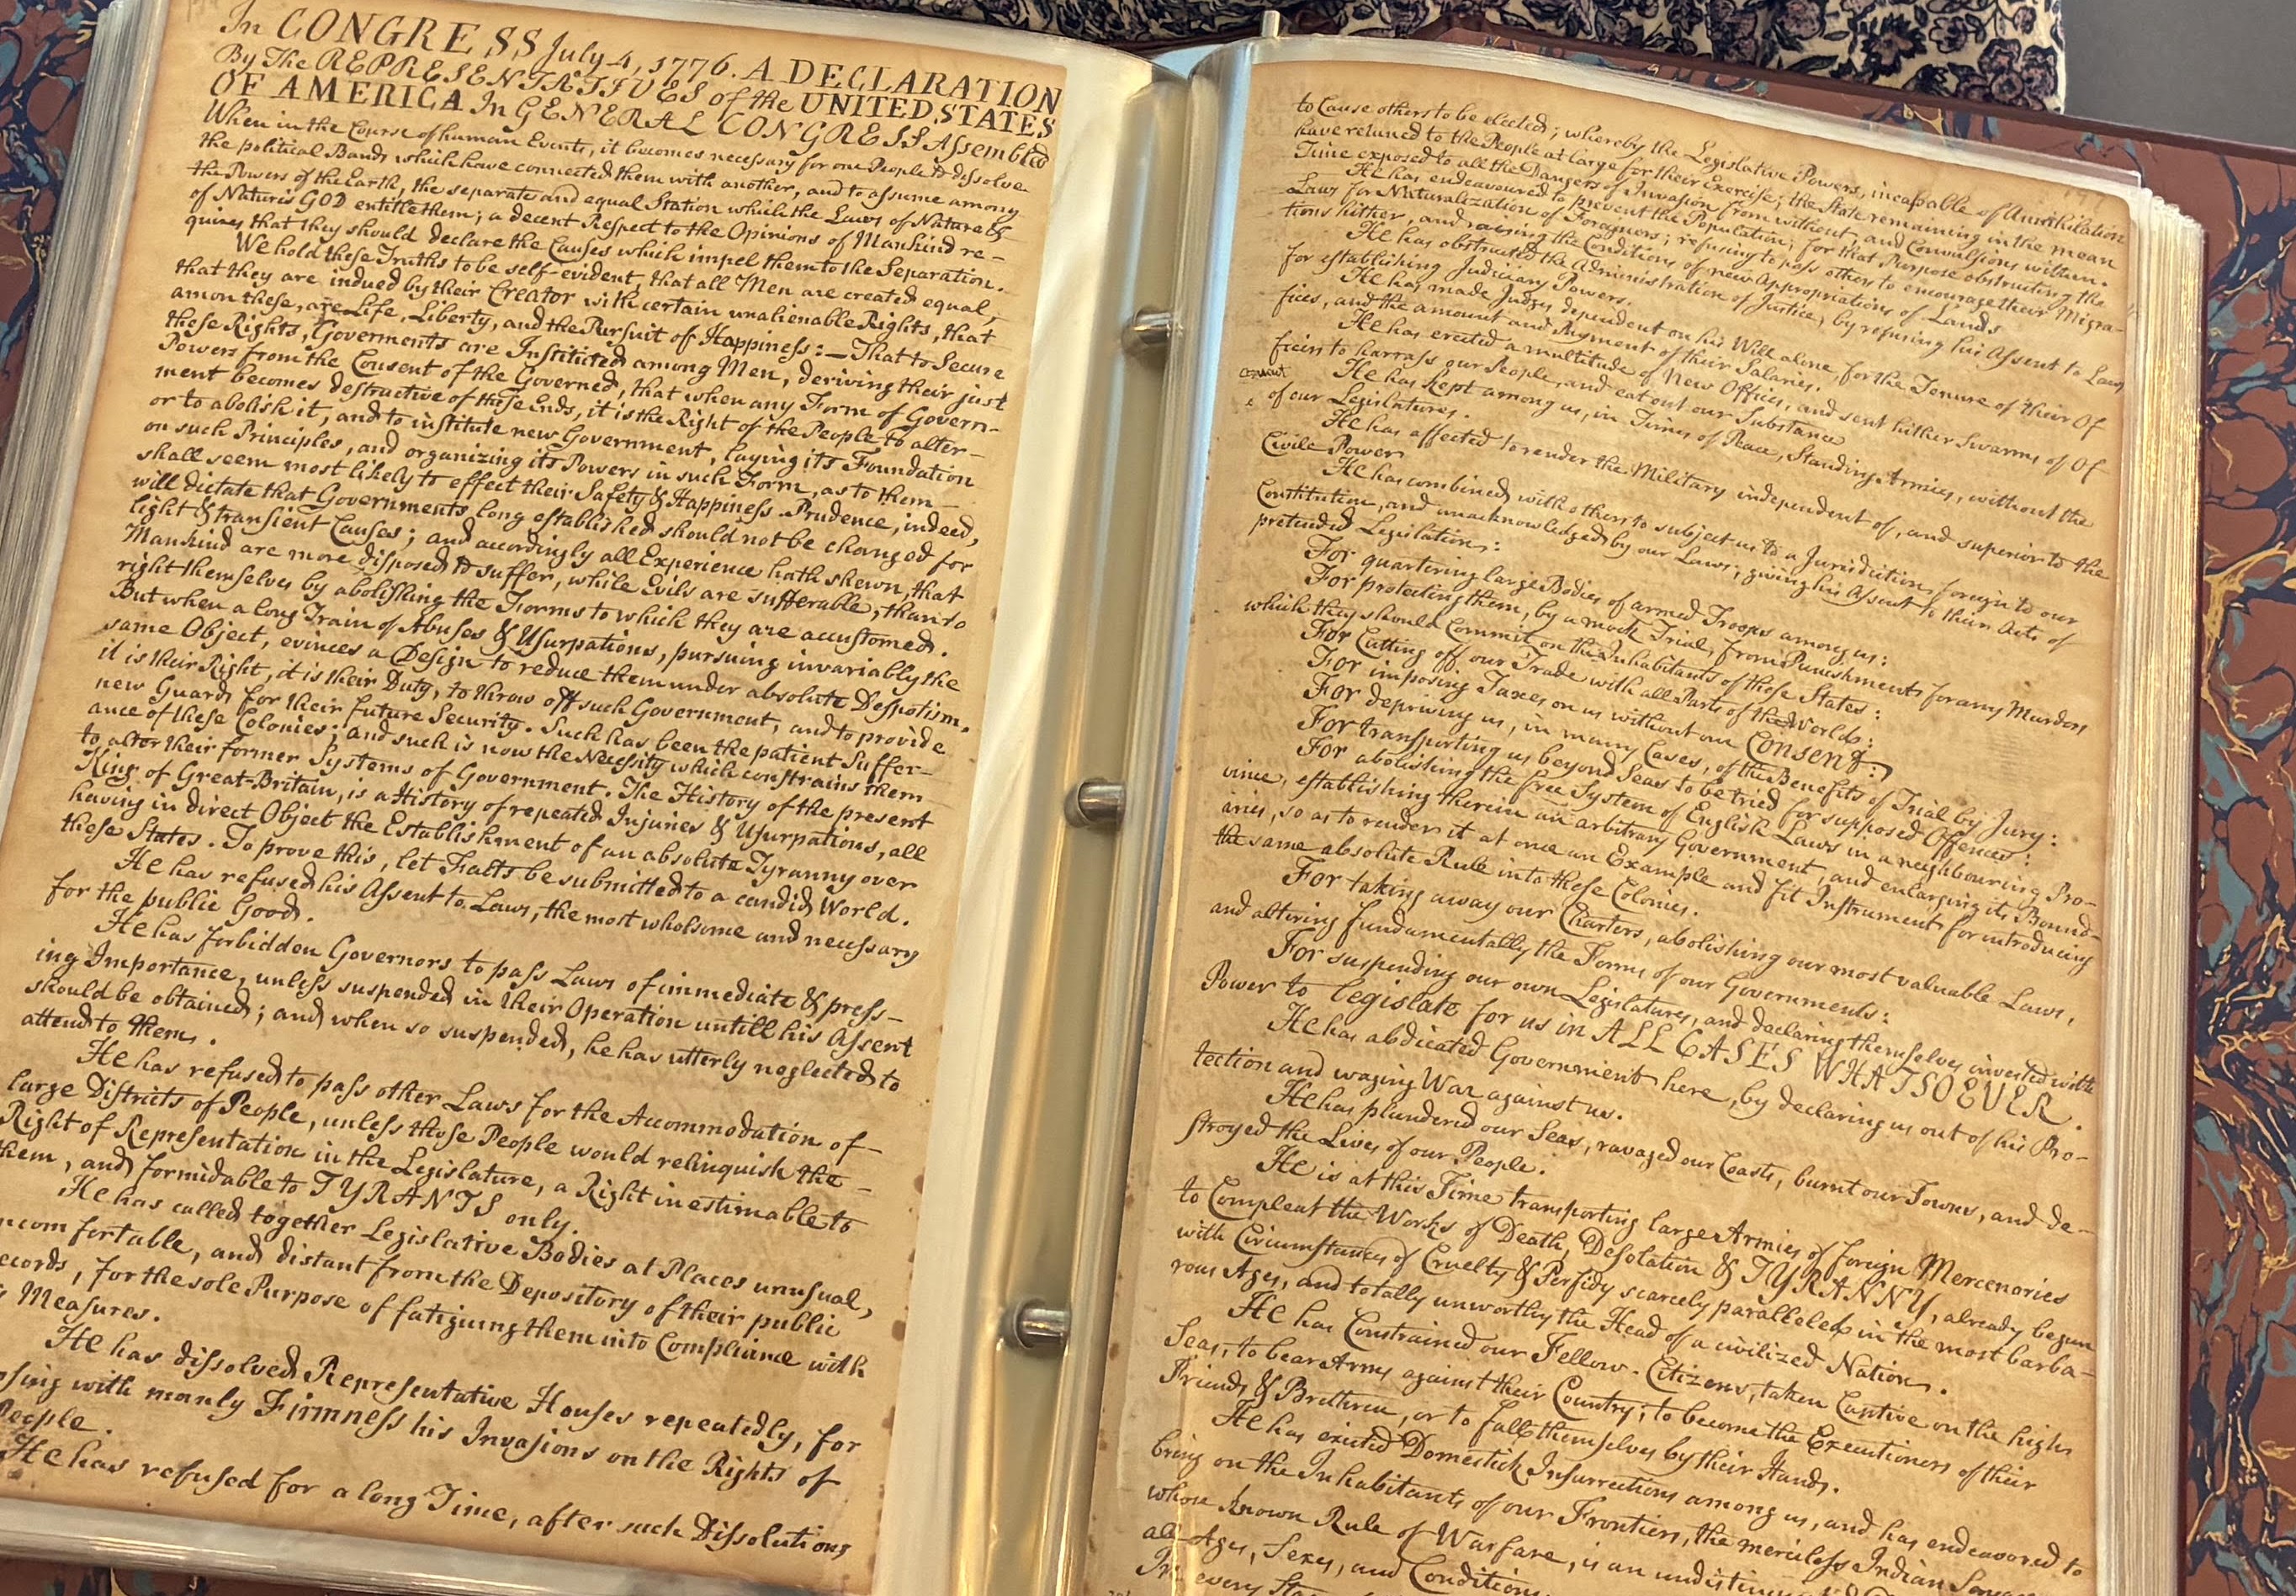 In CONGRESS July 4, 1776. A DECLARATION
By The REPRESENTATIVES of the UNITED STATES
OF AMERICA In GENERAL CONGRESS Assembled
When in the Course of human Events, it becomes necessary for one People to dissolve
the political Bands which have connected them with another, and to assume among
the Powers of the Earth, the separate and equal Station which the Laws of Nature &
of Nature's GOD entitle them; a decent Respect to the Opinions of Mankind re-
quires that they should declare the Causes which impel them to the Separation.
We hold these Truths to be self-evident, that all Men are created equal,
that they are indued by their Creator with certain unalienable Rights, that
amon these, are Life, Liberty, and the Pursuit of Happiness:— That to Secure
these Rights, Goverments are Instituted among Men, deriving their just
Powers from the Consent of the Governed, that when any Form of Govern-
ment becomes destructive of these Ends, it is the Right of the People to alter-
or to abolish it, and to institute new Government, laying its Foundation
on such Principles, and organizing its Powers in such Form, as to them
shall seem most likely to effect their Safety & Happiness. Prudence, indeed,
will dictate that Governments long established should not be changed for
light & transient Causes; and accordingly all Experience hath shewn, that
Mankind are more disposed to suffer, while Evils are sufferable, than to
right themselves by abolishing the Forms to which they are accustomed.
But when a long Train of Abuses & Usurpations, pursuing invariably the
same Object, evinces a Design to reduce them under absolute Despotism,
it is their Right, it is their Duty, to throw off such Government, and to provide
new Guards for their future Security. Such has been the patient Suffer-
ance of these Colonies; and such is now the Necessity which constrains them
to alter their former Systems of Government. The History of the present
King of Great-Britain, is a History of repeated Injuries & Usurpations, all
having in direct Object the Establishment of an absolute Tyranny over
these States. To prove this, let Facts be submitted to a candid World.
He has refused his Assent to Laws, the most wholsome and necessary
for the public Good.
He has forbidden Governors to pass Laws of immediate & press-
ing Importance, unless suspended in their Operation untill his Assent
should be obtained; and when so suspended, he has utterly neglected to
attend to them.
He has refused to pass other Laws for the Accommodation of-
large Districts of People, unless those People would relinquish the-
Right of Representation in the Legislature, a Right inestimable to
them, and formidable to TYRANTS only.
He has called together Legislative Bodies at Places unusual,
ncomfortable, and distant from the Depository of their public
ecords, for the sole Purpose of fatiguing them into Compliance with
s Measures.
He has dissolved Representative Houses repeatedly, for
osing with manly Firmness his Invasions on the Rights of
People.
He has refused for a long Time, after such Dissolutions
to Cause others to be elected; whereby the Legislative Powers, incapable of Annihilation
have retuned to the People at large for their Exercise; the State remaining in the mean
Time exposed to all the Dangers of Invasion from without, and Convulsions within.
He has endeavoured to prevent the Population; for that Purpose obstructing the
Laws for Naturalization of Foreigners; refusing to pass others to encourage their Migra-
tions hither, and raising the Conditions of new Appropriations of Lands
He has obstructed the Administration of Justice, by refusing his Assent to Laws
for establishing Judiciary Powers.
He has made Judges dependent on his Will alone, for the Tenure of their Of
fices, and the amount and Payment of their Salaries.
He has erected a multitude of New Offices, and sent hither Swarms of Of
ficers to harrass our People, and eat out our Substance
He has kept among us, in Times of Peace, Standing Armies, without the
consent
of our Legislatures.
He has affected to render the Military independent of, and superior to the
Civile Power
He has combined with others to subject us to a Jurisdiction foreign to our
Constitution, and unacknowledged by our Laws; giving his Assent to their Acts of
pretended Legislation:
For quartering large Bodies of armed Troops among us:
For protecting them, by a mock Trial, from Punishments for any Murders
which they should Commit on the Inhabitants of these States:
For Cutting off our Trade with all Parts of the World:
For imposing Taxes on us without our Consent:
For depriving us, in many Cases, of the Benefits of Trial by Jury:
For transporting us beyond Seas to be tried for supposed Offences:
For abolishing the free System of English Laws in a neighbouring Pro-
vince, establishing therein an arbitrary Government, and enlarging its Bound-
aries, so as to render it at once an Example and fit Instrument for introducing
the same absolute Rule into these Colonies.
For taking away our Charters, abolishing our most valuable Laws,
and altering fundamentally the Forms of our Governments:
For suspending our own Legislatures, and declaring themselves invested with
Power to legislate for us in ALL CASES WHATSOEVER.
He has abdicated Government here, by declaring us out of his Pro-
tection and waging War against us.
He has plundered our Seas, ravaged our Coasts, burnt our Towns, and de-
stroyed the Lives of our People.
He is at this Time transporting large Armies of foreign Mercenaries
to Compleat the Works of Death, Desolation & TYRANNY, already begun
with Circumstances of Cruelty & Perfidy scarcely paralleled in the most barba-
rous Ages, and totally unworthy the Head of a civilized Nation.
He has Constrained our Fellow-Citizens, taken Captive on the high
Seas, to bear Arms against their Country; to become the Executioners of their
Friends & Brethren, or to fall themselves by their Hands.
He has excited Domestick Insurrections among us, and has endeavored to
bring on the Inhabitants of our Frontiers, the merciless Indian
whose known Rule of Warfare, is an
all Ages, Sexes, and Conditions
In every